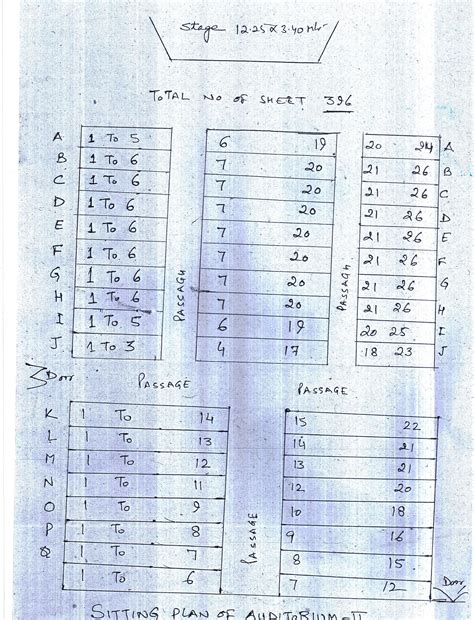 Stage 12.25 x 3.40 mtr
TOTAL NO OF SHEET 396
A 1 To 5 6 19 20 24 A
B 1 To 6 7 20 21 26 B
C 1 To 6 7 20 21 26 C
D 1 To 6 7 20 21 26 D
E 1 To 6 7 20 21 26 E
F 1 To 6 7 20 21 26 F
G 1 To 6 7 20 21 26 G
H 1 To 6 7 20 21 26 H
I 1 To 5 6 19 20 25 I
J 1 To 3 4 17 18 23 J
PASSAGH
PASSAGH
Door
PASSAGE
PASSAGE
K 1 To 14 15 22
L 1 To 13 14 21
M 1 To 12 13 21
N 1 To 11 12 20
O 1 To 9 10 18
P 1 To 8 9 16
Q 1 To 7 8 15
1 To 6 7 12
PASSAGE
Door
SITTING PLAN OF AUDITORIUM-II